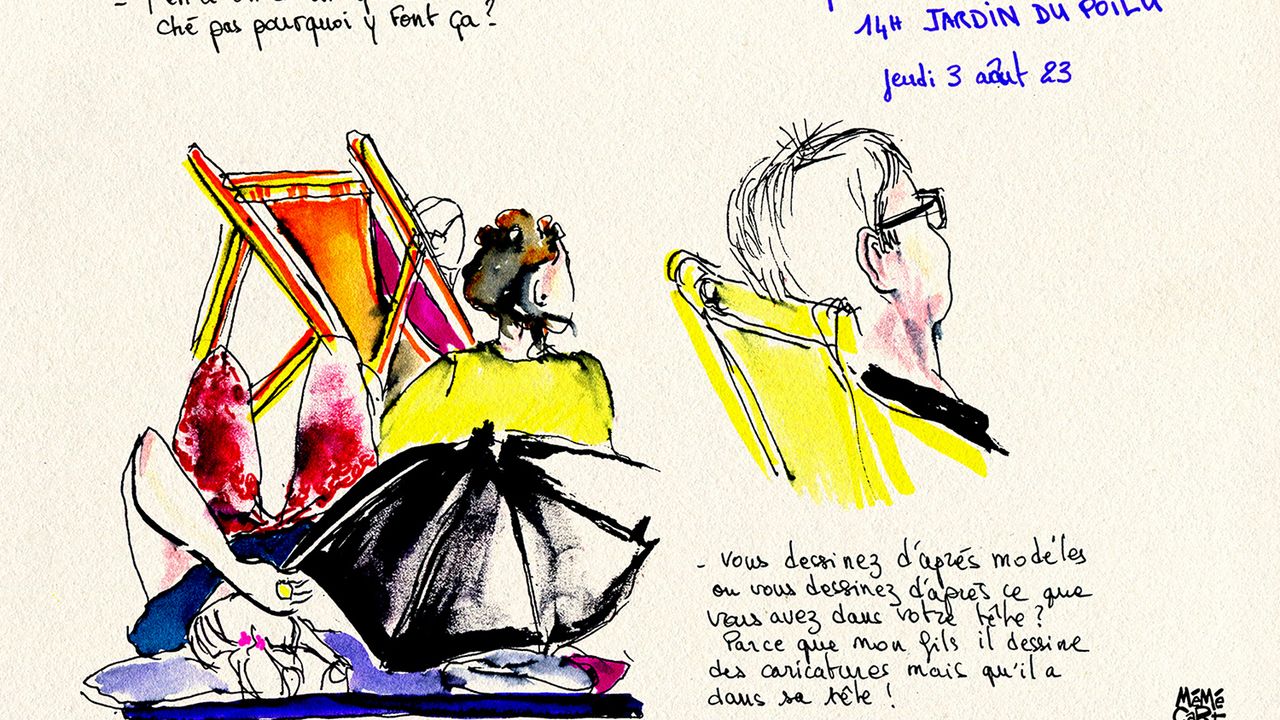 ché pas pourquoi y font ça?
14H JARDIN DU POILU
jeudi 3 août 23
- vous dessinez d'après modèles
ou vous dessinez d'après ce que
vous avez dans votre tête ?
Parce que mon fils il dessine
des caricatures mais qu'il a
dans sa tête !
MéMé